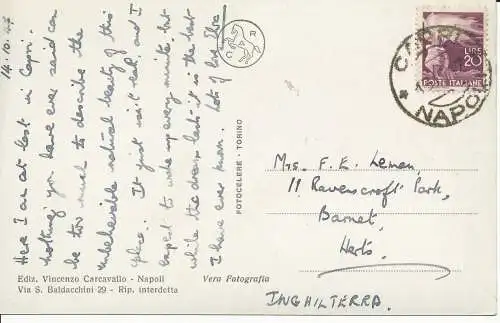 14.10.47
Here I am at last in Capri.
nothing you have ever said can
be too much to describe the
unbelievable natural beauty of this
place. It just isn't real and I
expect to wake up every minute but
while the dream lasts it is the best
I have ever known. Lots of love
FOTOCELERE - TORINO
CAPRI
NAPOLI
LIRE
20
POSTE ITALIANE
Mrs. F. E. Lemen,
11 Ravenscroft Park,
Barnet,
Herts.
INGHILTERRA.
Ediz. Vincenzo Carcavallo - Napoli
Via S. Baldacchini 29 - Rip. interdetta
Vera Fotografia